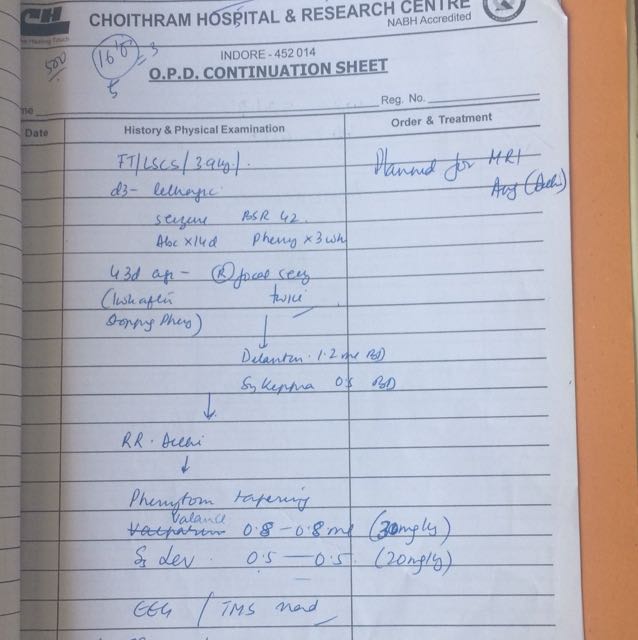 CH
CHOITHRAM HOSPITAL & RESEARCH CENTRE
NABH Accredited
INDORE - 452 014
O.P.D. CONTINUATION SHEET
500
5
Reg. No.
Date
History & Physical Examination
Order & Treatment
FT/LSCS/3.9kg/.
Planned for MRI
Aug (Delhi)
d3- lethargic
seizure RSR 42
Abc x14d Pheny x 3wk
43d age - (R) focal seiz
(1wk after twice
stopping Pheny)
Delantin 1.2 ml BD
Sy Keppra 0.5 BD
RR. Delhi
Phenytoin tapering
Valance
0.8 - 0.8 ml (30mg/kg)
Sy Lev. 0.5 — 0.5 (20mg/kg)
EEG / TMS